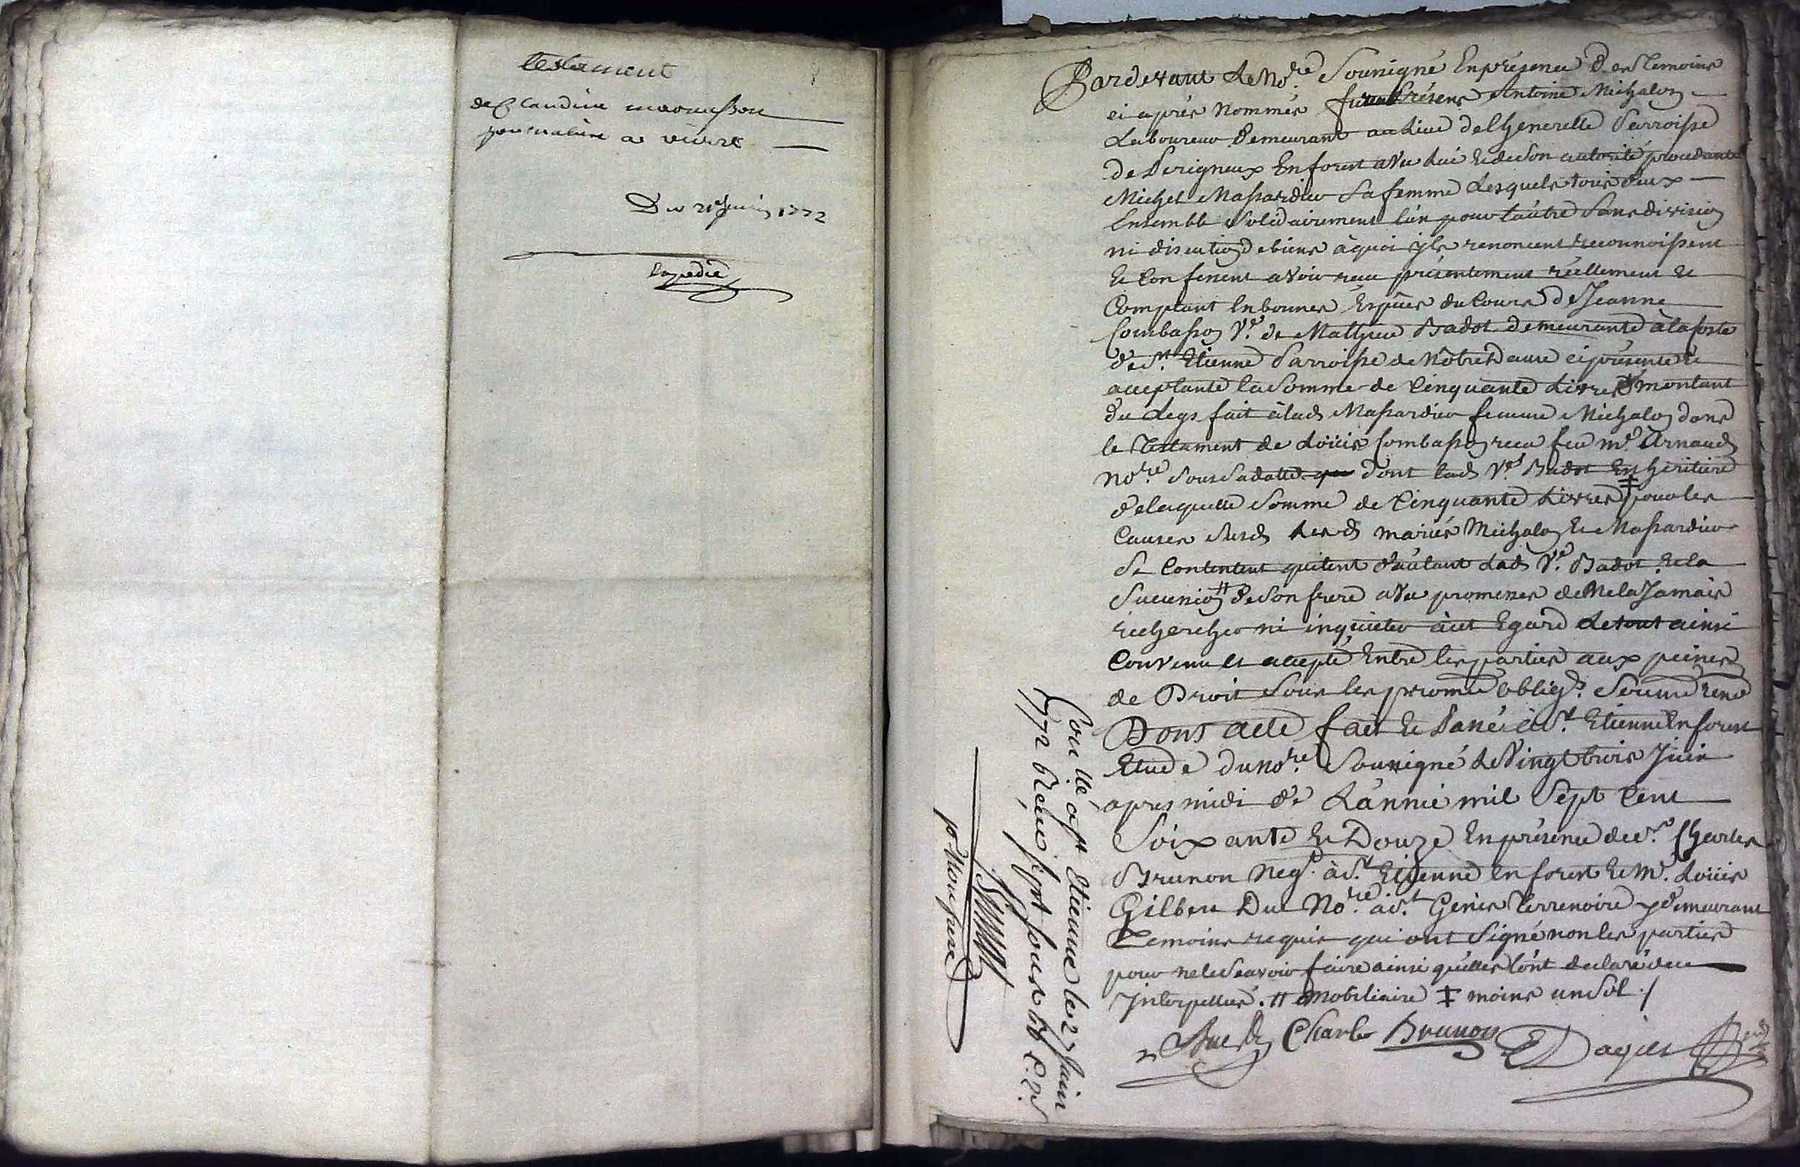 testament
de Claudine
a
Du 21e juin 1772
Expedié
Pardevant Le Nore Soussigné En présence des Temoins
ci après nommés furent Présens Antoine Michalon
Laboureur Demeurant au Lieu del Generelle Parroisse
de Perigneux En forest a Vu Lui et de Son autorité procedante
Michel Massardier Sa femme Lesquels tous deux
Ensemble Solidairement l'un pour l'autre Sans division
ni discution de biens à quoi ils renoncent reconnoissent
et Confessent avoir reçu présentement réellement et
Comptant En bonnes Espèces du Cours de Jeanne
Combasson Ve de Mathieu Badot demeurante à la
de St Etienne Parroisse de Nôtre Dame ci présente et
acceptante la Somme de Cinquante Livres montant
du Legs fait à lad Massardier femme Michalon dans
le Testament de Loüis Combasson reçu feu me Arnaud
Nore Sous Sa datte dont lad Ve Badot Est heritiere
de laquelle Somme de Cinquante Livres ‡ pour les
Causes Susd Lesd mariés Michalon et Massardier
Se Contentent quitent d'autant lad Ve Badot et la
Succession # de Son frere avec promesses de Ne la Jamais
rechercher ni inquieter à cet Egard Le tout ainsi
Convenu et accepté Entre les parties aux peines
de Droit Sous les prome obligs Soumis renc
Dont acte fait et Passé à St Etienne En forest
Etude du nore Soussigné Le Vingt trois Juin
apres midi de L'année mil Sept Cent
Soixante et Douze En présence de Sr Charles
Brunon Negt à St Etienne En forest et Me Loüis
Gilbert Nore à St Genis Terrenoire y demeurant
Temoins requis qui ont Signé non les parties
pour ne le Sçavoir faire ainsi qu'elles l'ont declaré de ce
Interpellées. # Mobiliaire ‡ moins un Sol ./
Charles Brunon Dagier
Con lé a St Etienne le 27 Juin
1772 Reçu sept sous